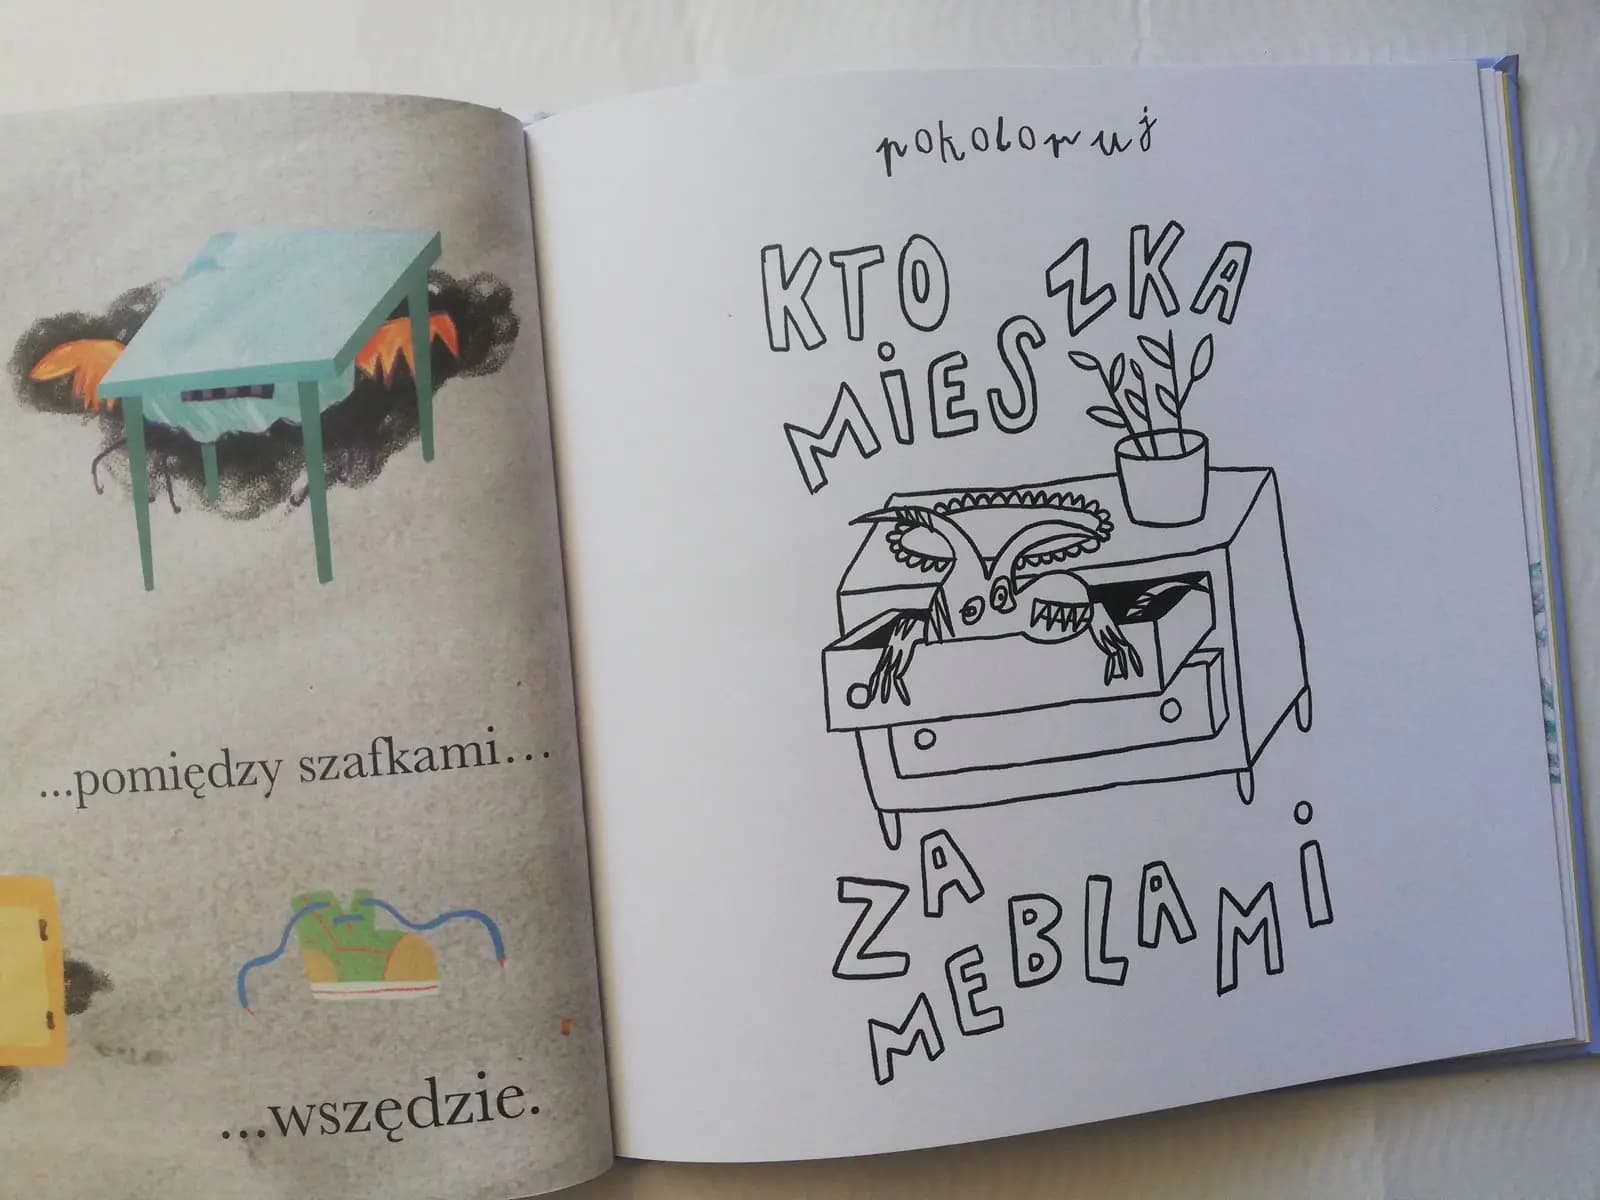 ...pomiędzy szafkami...
...wszędzie.
pokoloruj
KTO
MiESZKA
ZA
MEBLAMi